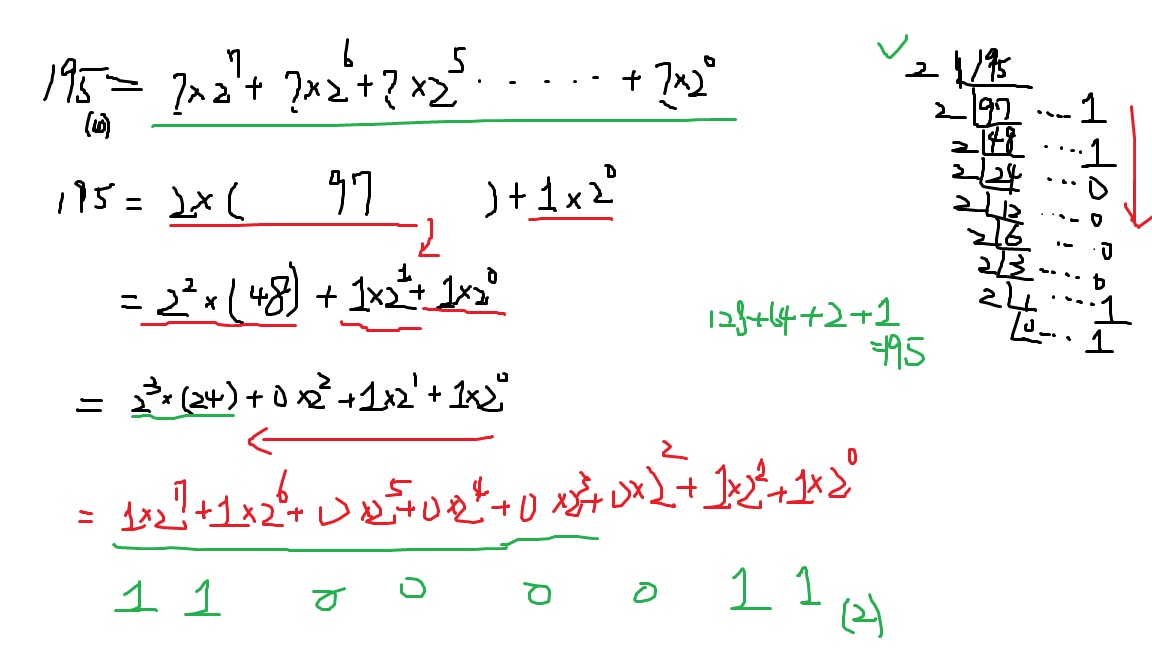 195₍₁₀₎ = ?×2⁷ + ?×2⁶ + ?×2⁵ ····· + ?×2⁰
195 = 2×( 97 ) + 1×2⁰
= 2²×(48) + 1×2¹ + 1×2⁰
= 2³×(24) + 0×2² + 1×2¹ + 1×2⁰
= 1×2⁷ + 1×2⁶ + 0×2⁵ + 0×2⁴ + 0×2³ + 0×2² + 1×2¹ + 1×2⁰
1 1 0 0 0 0 1 1 (2)
✓
2 195
2 97 ···· 1
2 48 ···· 1
2 24 ··· 0
2 12 ··· 0
2 6 ··· 0
2 3 ···· 0
2 1 ···· 1
0 ··· 1
128+64+2+1
=195